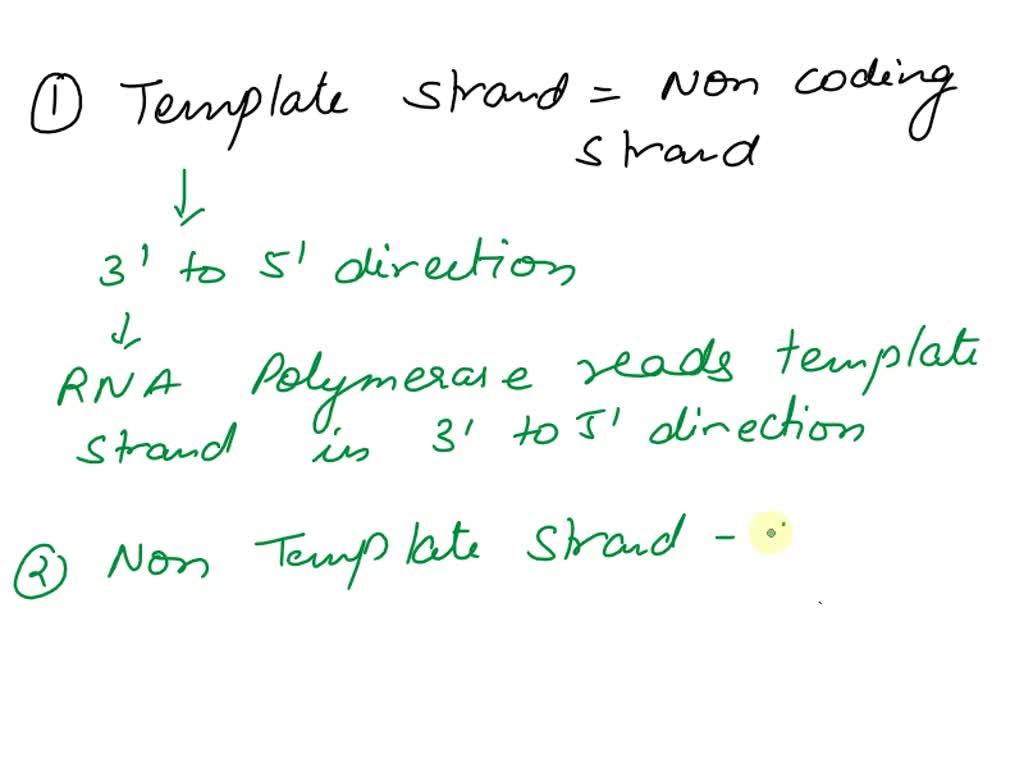 ① Template strand = Non coding
strand
↓
3' to 5' direction
↓
RNA Polymerase reads template
strand in 3' to 5' direction
② Non Template strand -